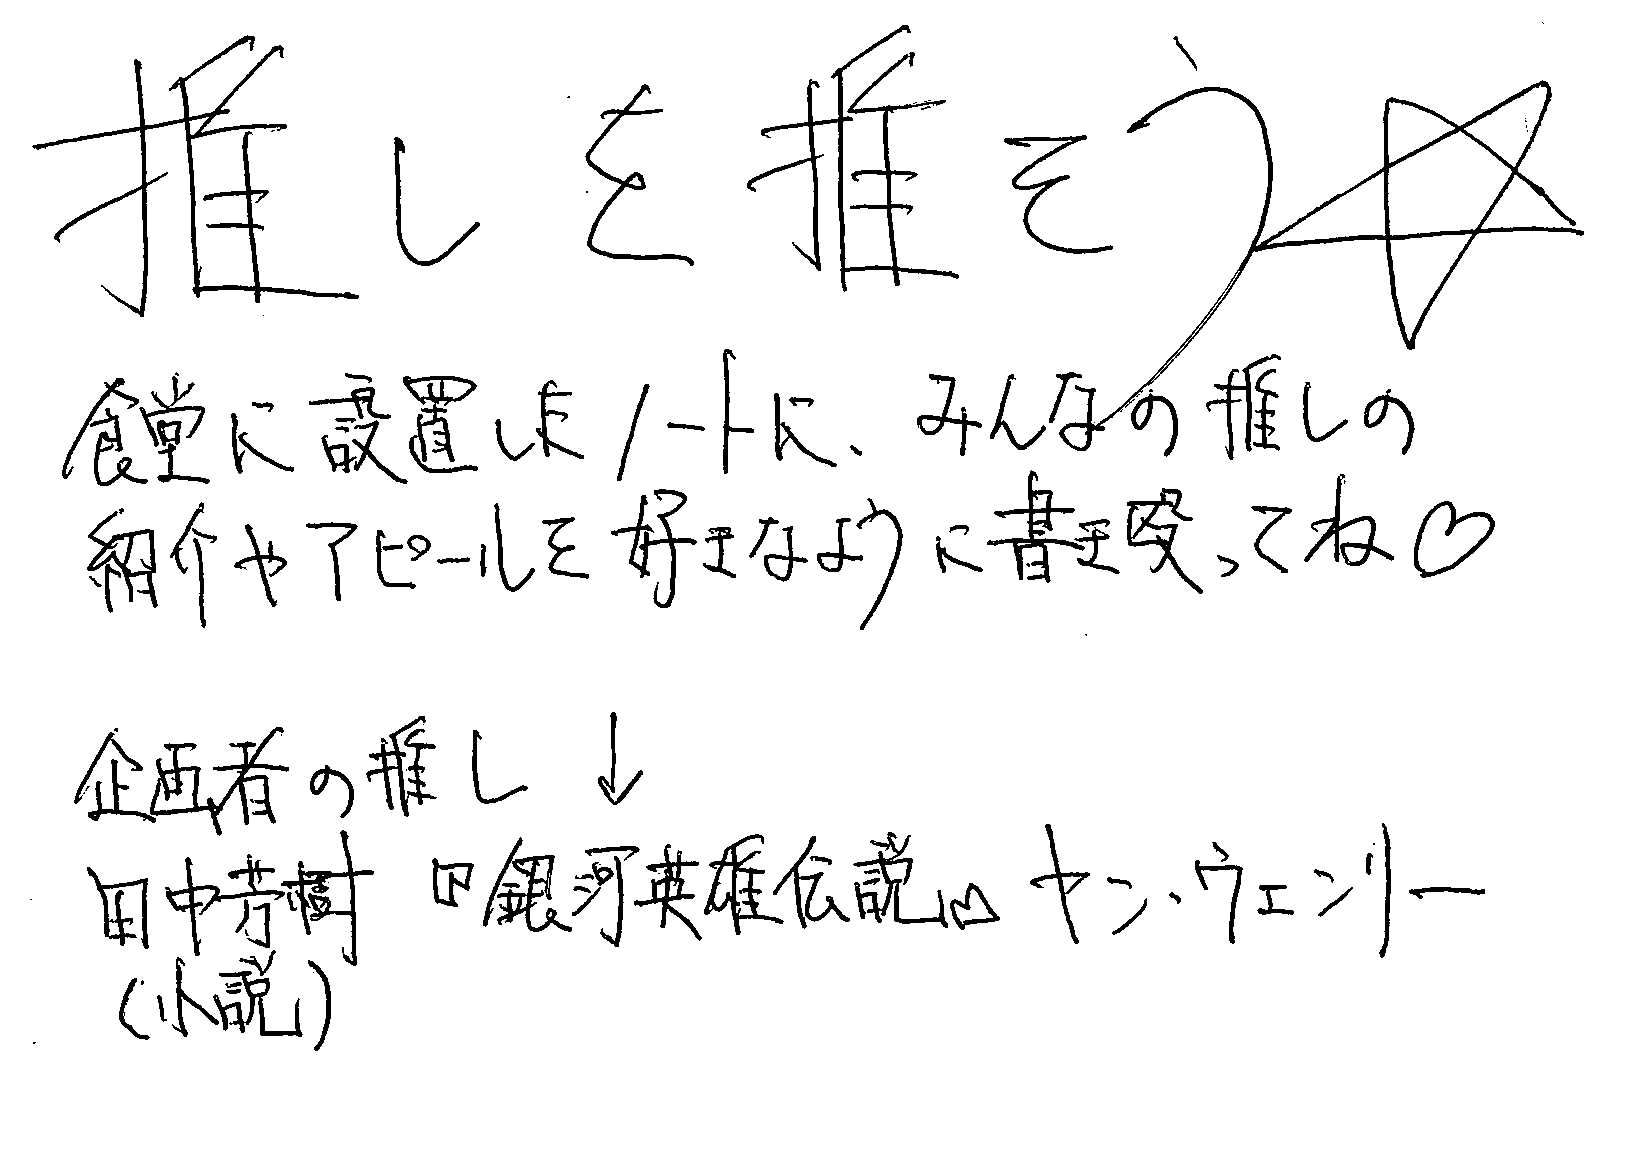 推しを推そう☆
食堂に設置したノートに、みんなの推しの
紹介やアピールを好きなように書き殴ってね♡
企画者の推し↓
田中芳樹『銀河英雄伝説』ヤン・ウェンリー
(小説)